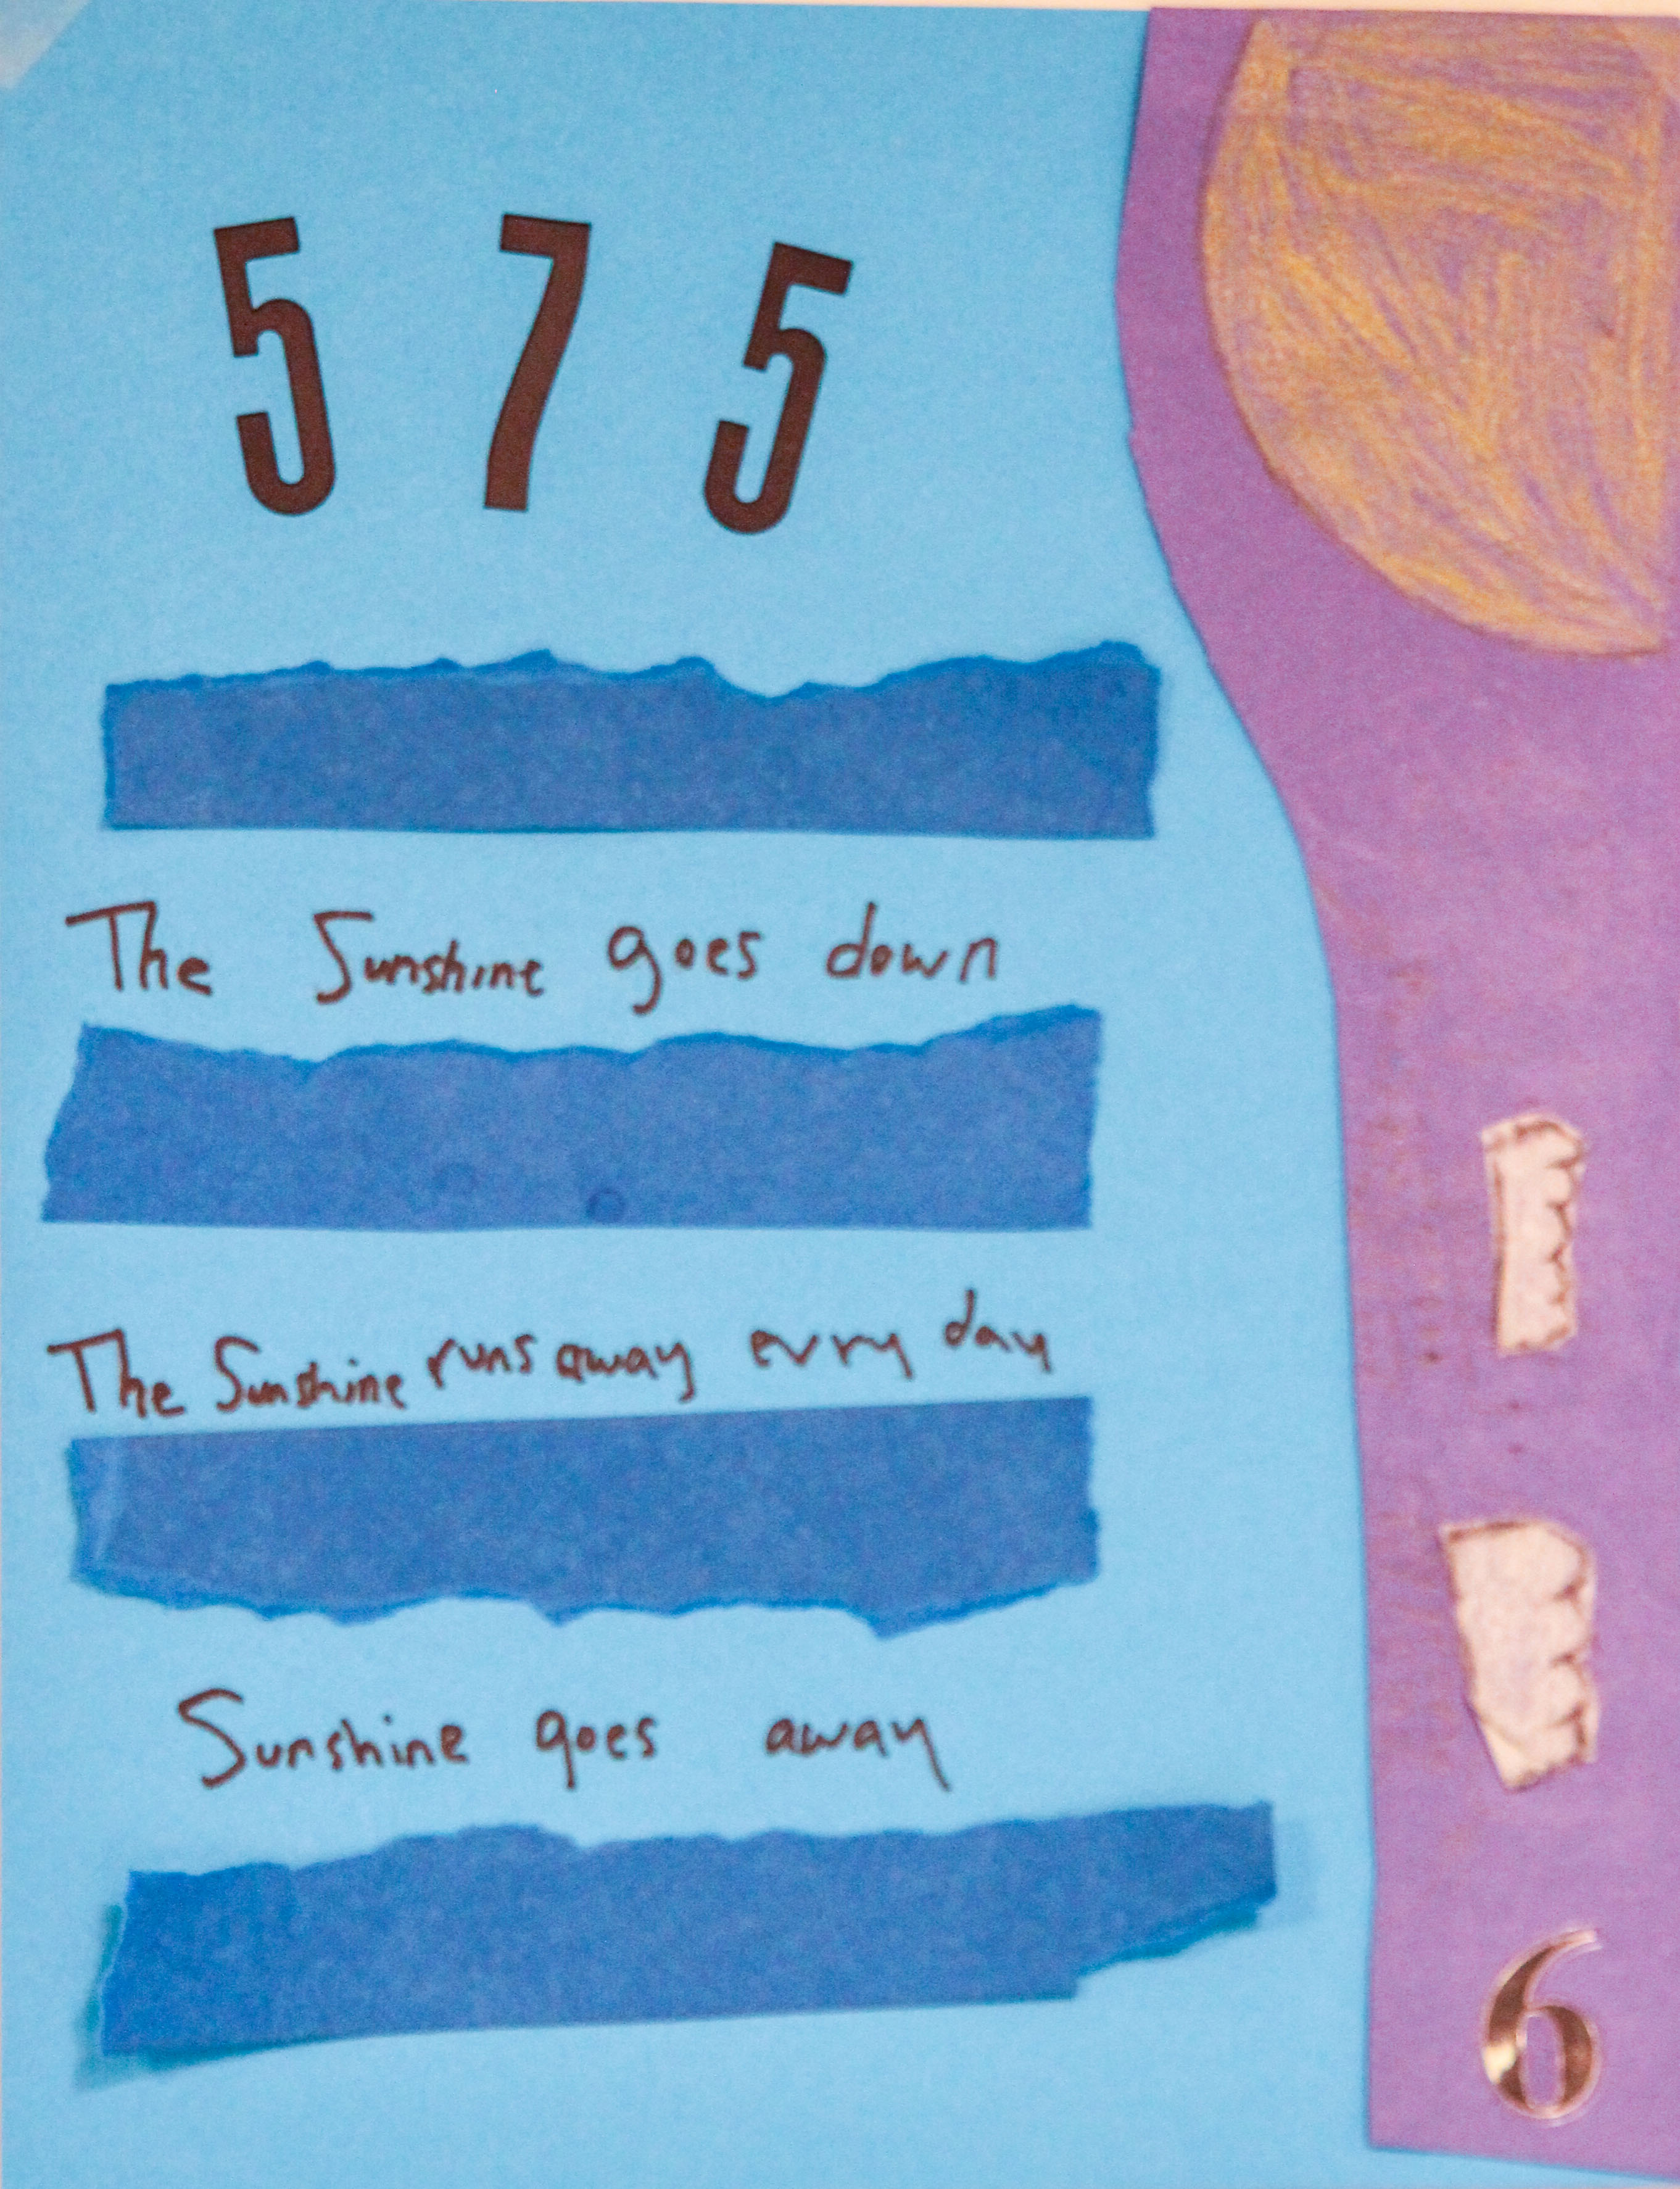 5 7 5
The Sunshine goes down
The Sunshine runs away evry day
Sunshine goes away
6